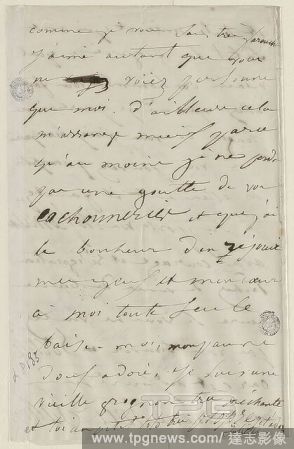 comme je vous sais très
j'aime autant que vous
ne voiez personne
que moi. d'ailleurs cela
m'arrange mieux parce
qu'au moins je ne perds
pas une goutte de vos
cochonneries et que j'ai
le bonheur d'en réjouir
mes yeux et mon cœur
à moi toute seule
baise-moi, mon pauvre
adoré, je suis une
vieille grognon
et toi un petit
www.tpgnews.com / 達志影像